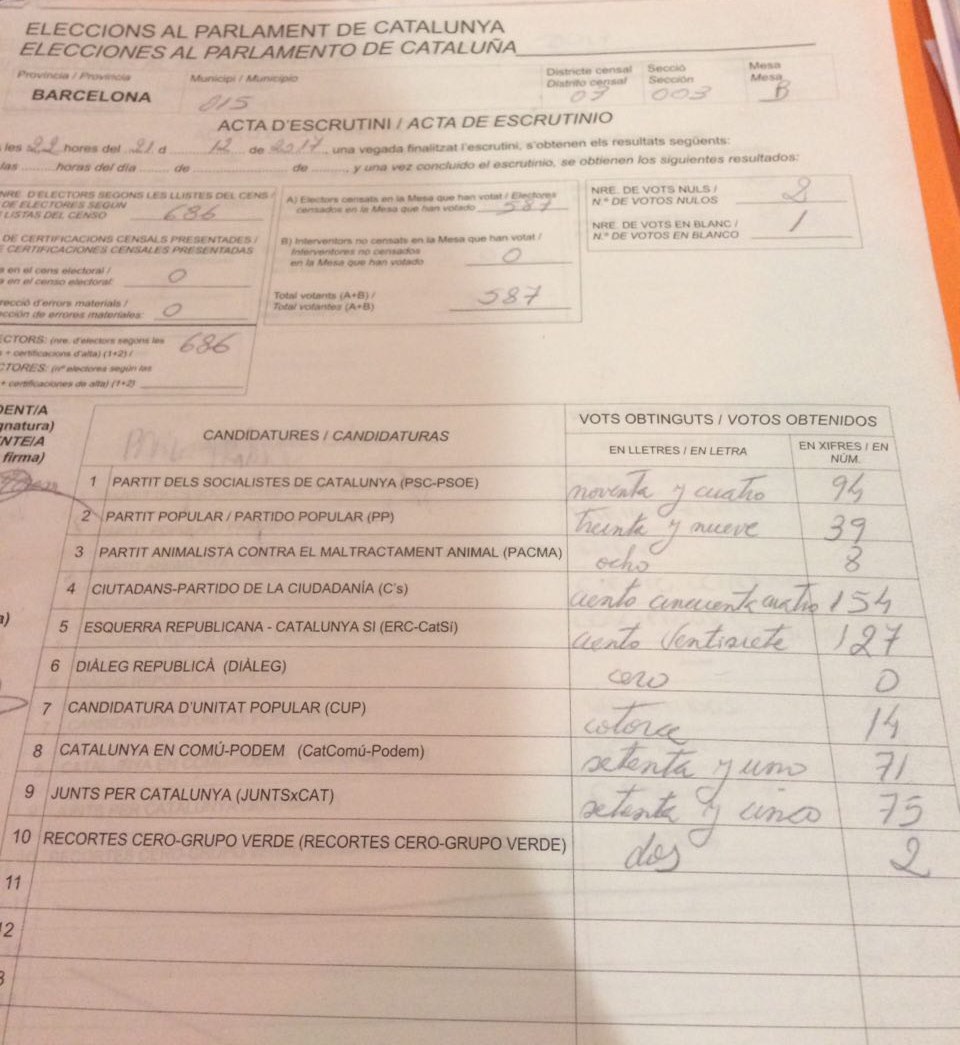 ELECCIONS AL PARLAMENT DE CATALUNYA
ELECCIONES AL PARLAMENTO DE CATALUÑA
Província / Provincia Municipi / Municipio Districte censal Secció Mesa
Distrito censal Sección Mesa
BARCELONA 015 07 003 B
ACTA D'ESCRUTINI / ACTA DE ESCRUTINIO
les 22 hores del 21 d 12 de 2017, una vegada finalitzat l'escrutini, s'obtenen els resultats següents:
las horas del día de de , y una vez concluido el escrutinio, se obtienen los siguientes resultados:
NRE. D'ELECTORS SEGONS LES LLISTES DEL CENS /
DE ELECTORES SEGÚN
LISTAS DEL CENSO 686
DE CERTIFICACIONS CENSALS PRESENTADES /
CERTIFICACIONES CENSALES PRESENTADAS
a en el cens electoral /
a en el censo electoral: 0
recció d'errors materials /
cción de errores materiales: 0
ECTORS: (nre. d'electors segons les 686
+ certificacions d'alta) (1+2) /
CTORES: (nº electores según las
+ certificaciones de alta) (1+2)
A) Electors censats en la Mesa que han votat / Electores
censados en la Mesa que han votado 587
B) Interventors no censats en la Mesa que han votat /
Interventores no censados
en la Mesa que han votado 0
Total votants (A+B) /
Total votantes (A+B) 587
NRE. DE VOTS NULS /
N.º DE VOTOS NULOS 2
NRE. DE VOTS EN BLANC /
N.º DE VOTOS EN BLANCO 1
DENT/A
gnatura)
NTE/A
firma)
CANDIDATURES / CANDIDATURAS VOTS OBTINGUTS / VOTOS OBTENIDOS
EN LLETRES / EN LETRA EN XIFRES / EN
NÚM.
1 PARTIT DELS SOCIALISTES DE CATALUNYA (PSC-PSOE) noventa y cuatro 94
2 PARTIT POPULAR / PARTIDO POPULAR (PP) treinta y nueve 39
3 PARTIT ANIMALISTA CONTRA EL MALTRACTAMENT ANIMAL (PACMA) ocho 8
4 CIUTADANS-PARTIDO DE LA CIUDADANÍA (C's) ciento cincuenta cuatro 154
5 ESQUERRA REPUBLICANA - CATALUNYA SÍ (ERC-CatSí) ciento Ventisiete 127
6 DIÀLEG REPUBLICÀ (DIÀLEG) cero 0
7 CANDIDATURA D'UNITAT POPULAR (CUP) cotorce 14
8 CATALUNYA EN COMÚ-PODEM (CatComú-Podem) setenta y uno 71
9 JUNTS PER CATALUNYA (JUNTSxCAT) setenta y cinco 75
10 RECORTES CERO-GRUPO VERDE (RECORTES CERO-GRUPO VERDE) dos 2
11
12
3